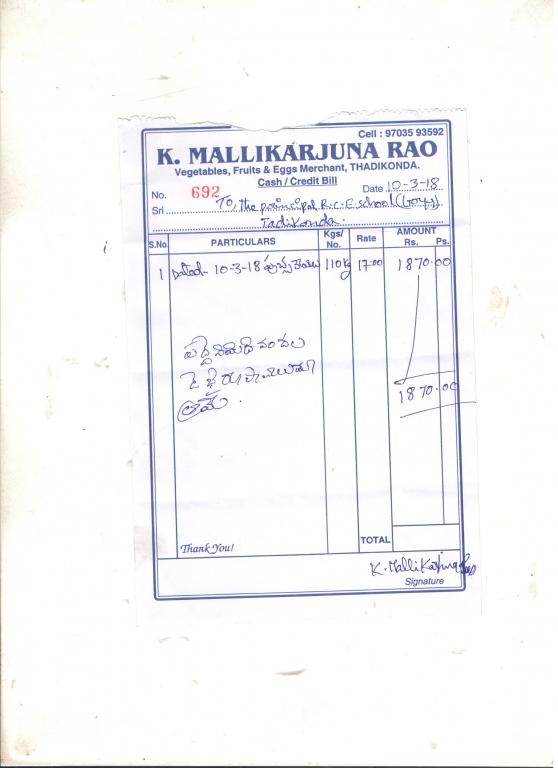 Cell : 97035 93592
K. MALLIKARJUNA RAO
Vegetables, Fruits & Eggs Merchant, THADIKONDA.
Cash / Credit Bill
No. 692 Date 10-3-18
Sri To, the principal R.C.E. school (Boys)
Tadikonda.
S.No. PARTICULARS Kgs/ No. Rate AMOUNT Rs. Ps.
1 Dated- 10-3-18 110 kg 17-00 1870.00
1870.00
Thank You! TOTAL
K. Mallikarjuna Rao
Signature